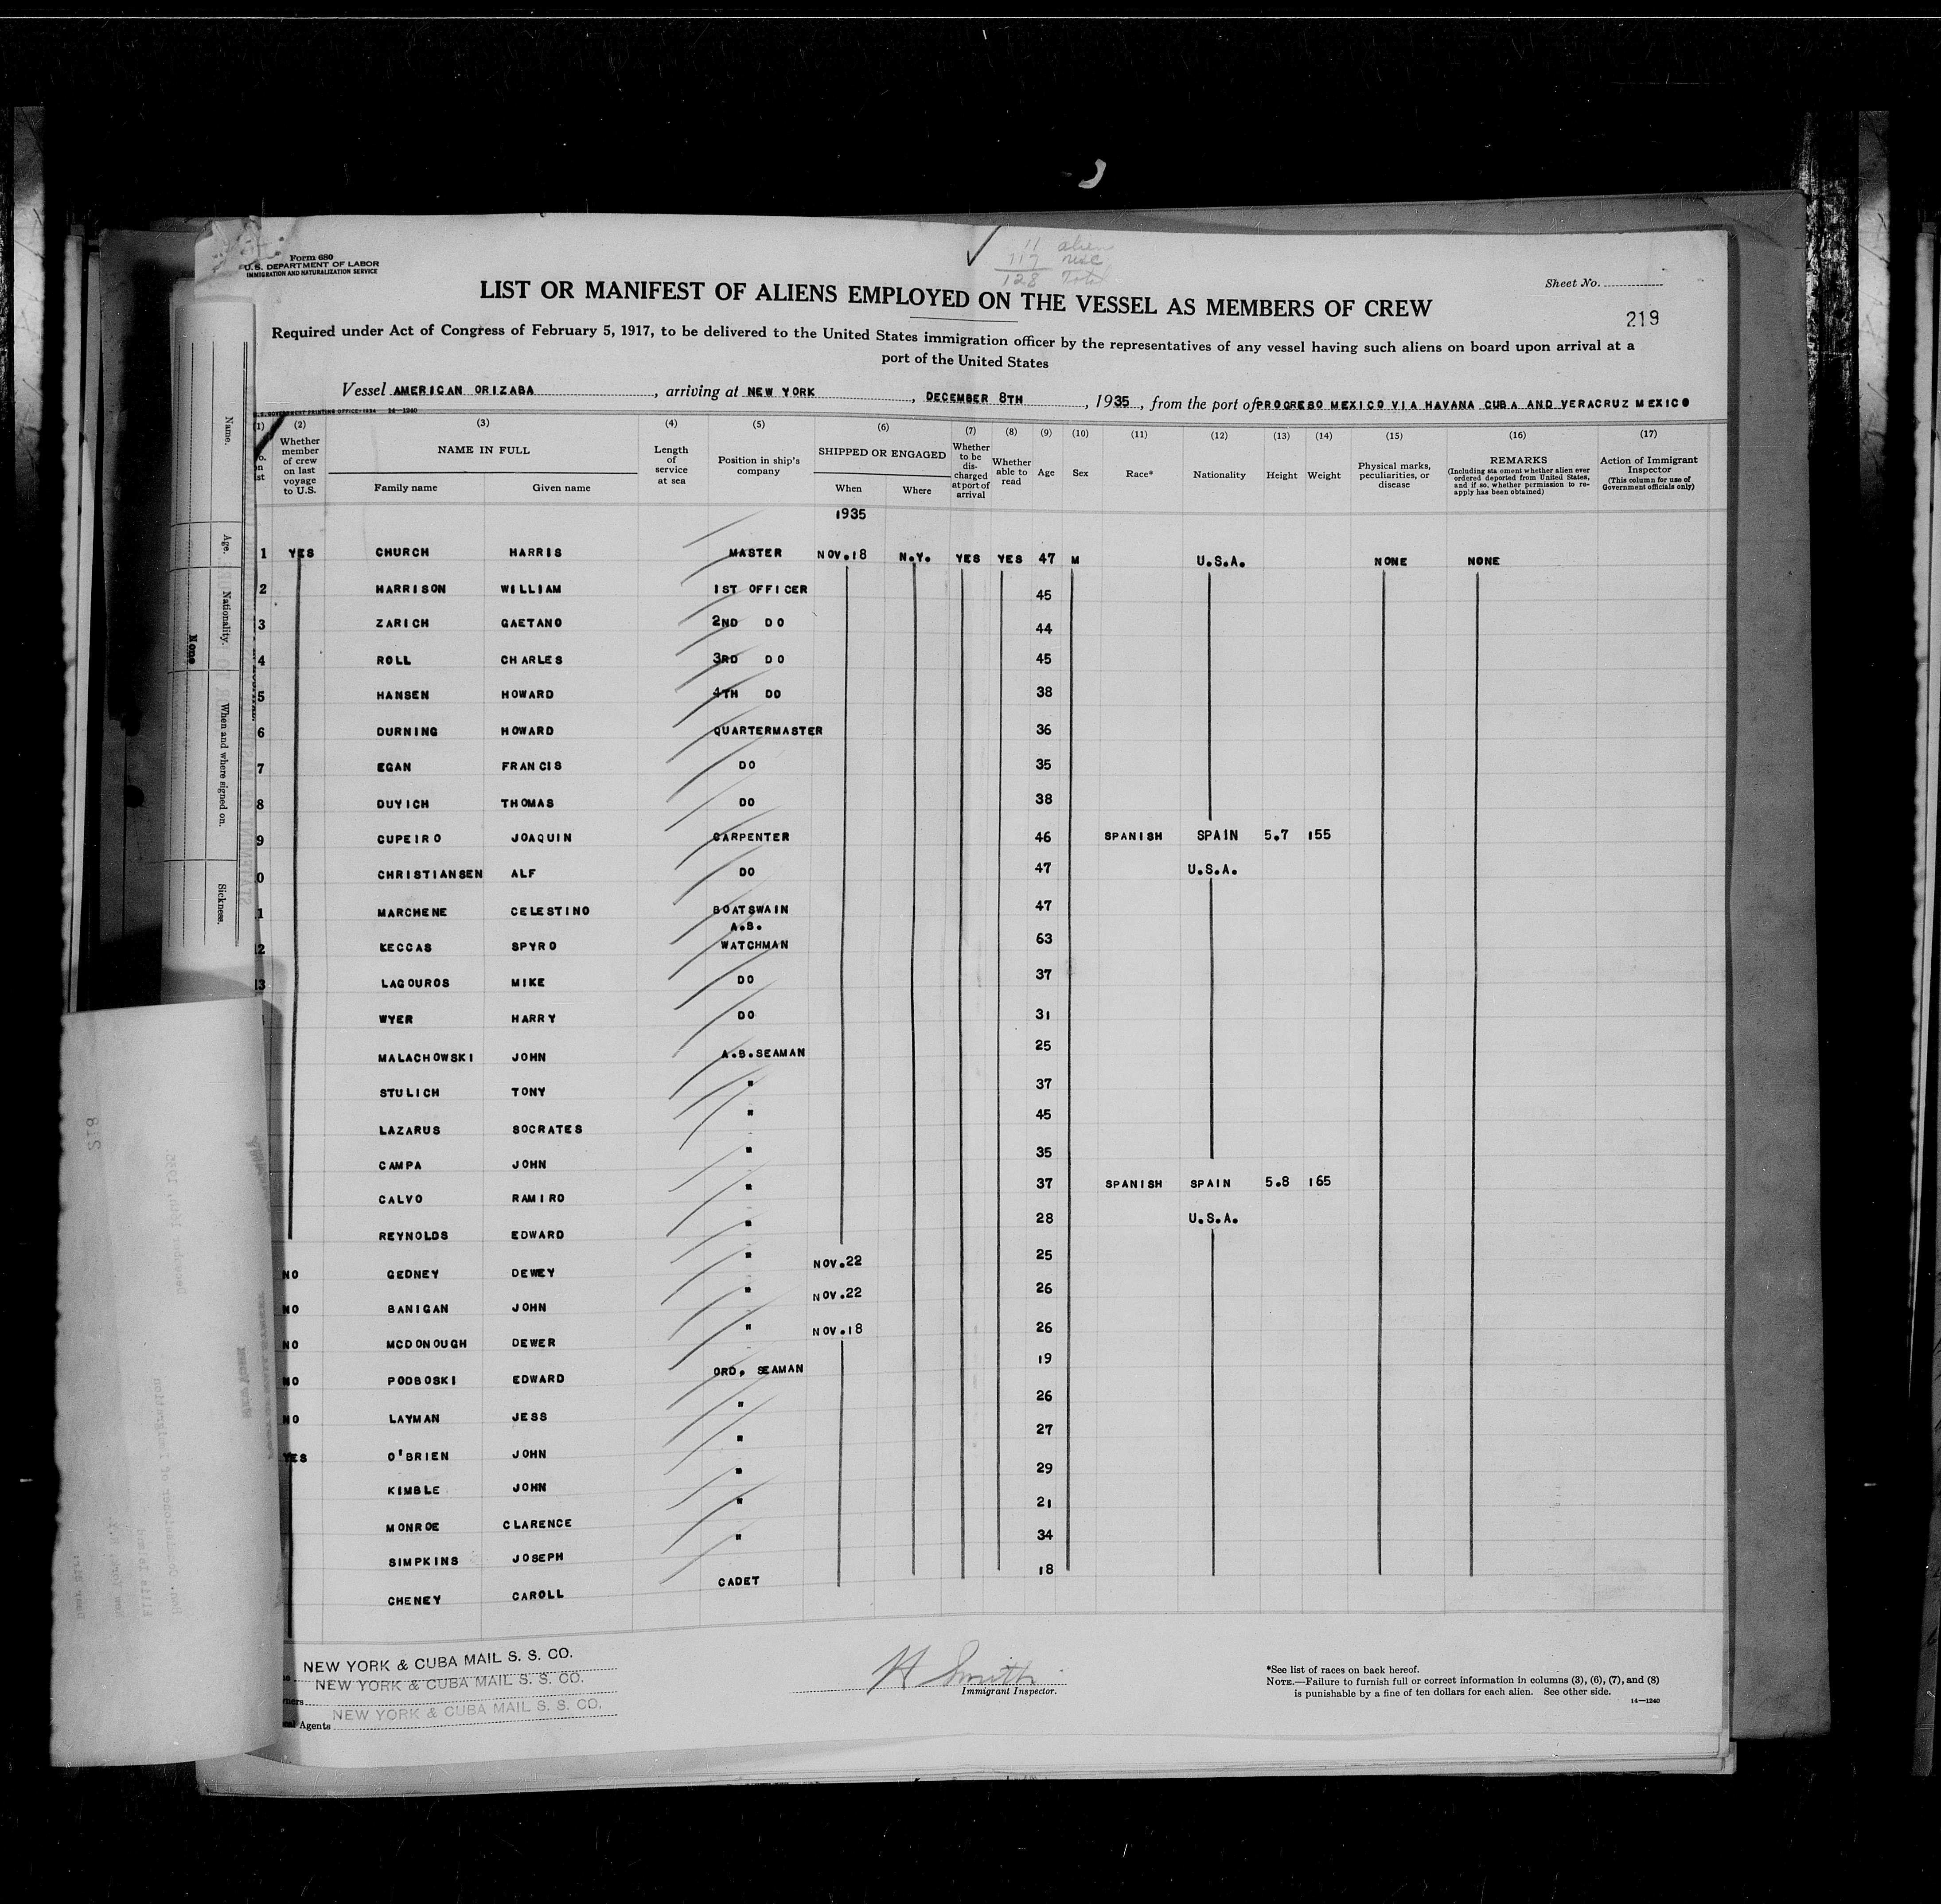 11 alien
117
128 Total
Form 680
U.S. DEPARTMENT OF LABOR
IMMIGRATION AND NATURALIZATION SERVICE
Sheet No.
LIST OR MANIFEST OF ALIENS EMPLOYED ON THE VESSEL AS MEMBERS OF CREW
219
Required under Act of Congress of February 5, 1917, to be delivered to the United States immigration officer by the representatives of any vessel having such aliens on board upon arrival at a
port of the United States
Vessel AMERICAN ORIZABA, arriving at NEW YORK, DECEMBER 8TH, 1935, from the port of PROGRESO MEXICO VIA HAVANA CUBA AND VERACRUZ MEXICO
U.S. GOVERNMENT PRINTING OFFICE: 1934 14—1240
(1) (2) (3) (4) (5) (6) (7) (8) (9) (10) (11) (12) (13) (14) (15) (16) (17)
Whether member of crew on last voyage to U.S.
NAME IN FULL
Family name Given name
Length of service at sea
Position in ship's company
SHIPPED OR ENGAGED
When Where
Whether to be discharged at port of arrival
Whether able to read
Age
Sex
Race*
Nationality
Height
Weight
Physical marks, peculiarities, or disease
REMARKS
(Including sta ement whether alien ever ordered deported from United States, and if so, whether permission to re-apply has been obtained)
Action of Immigrant Inspector
(This column for use of Government officials only)
1935
1 YES CHURCH HARRIS MASTER NOV.18 N.Y. YES YES 47 M U.S.A. NONE NONE
2 HARRISON WILLIAM 1ST OFFICER 45
3 ZARICH GAETANO 2ND DO 44
4 ROLL CHARLES 3RD DO 45
5 HANSEN HOWARD 4TH DO 38
6 DURNING HOWARD QUARTERMASTER 36
7 EGAN FRANCIS DO 35
8 DUYICH THOMAS DO 38
9 CUPEIRO JOAQUIN CARPENTER 46 SPANISH SPAIN 5.7 155
0 CHRISTIANSEN ALF DO 47 U.S.A.
1 MARCHENE CELESTINO BOATSWAIN 47
2 KECCAS SPYRO A.B. WATCHMAN 63
13 LAGOUROS MIKE DO 37
WYER HARRY DO 31
MALACHOWSKI JOHN A.B.SEAMAN 25
STULICH TONY " 37
LAZARUS SOCRATES " 45
CAMPA JOHN " 35
CALVO RAMIRO " 37 SPANISH SPAIN 5.8 165
REYNOLDS EDWARD " 28 U.S.A.
NO GEDNEY DEWEY " NOV.22 25
NO BANIGAN JOHN " NOV.22 26
NO MCDONOUGH DEWER " NOV.18 26
NO PODBOSKI EDWARD ORD. SEAMAN 19
NO LAYMAN JESS " 26
YES O'BRIEN JOHN " 27
KIMBLE JOHN " 29
MONROE CLARENCE " 21
SIMPKINS JOSEPH " 34
CHENEY CAROLL CADET 18
NEW YORK & CUBA MAIL S. S. CO.
NEW YORK & CUBA MAIL S. S. CO.
NEW YORK & CUBA MAIL S. S. CO.
Agents
H Smith
Immigrant Inspector.
*See list of races on back hereof.
NOTE.—Failure to furnish full or correct information in columns (3), (6), (7), and (8)
is punishable by a fine of ten dollars for each alien. See other side.
14—1240
Name.
Age.
Nationality.
When and where signed on.
Sickness.
None